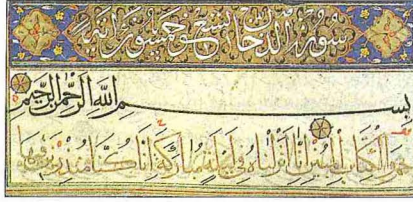 سورة الدخان تسع وخمسون آية
بسم الله الرحمن الرحيم
حم والكتاب المبين انا انزلناه في ليلة مباركة انا كنا منذرين فيها